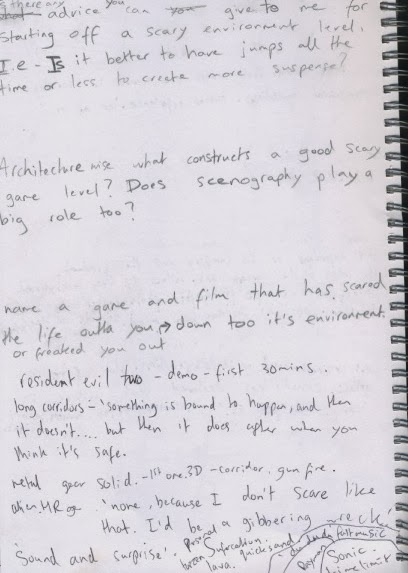 is there any
advice you can give to me for
starting off a scary environment level.
I.e - Is it better to have jumps all the
time or less to create more suspense?
Architecture wise what constructs a good scary
game level? Does scenography play a
big role too?
name a game and film that has scared
the life outta you → down too it's environment.
or freaked you out
resident evil two - demo - first 30mins.
long corridors - 'something is bound to happen, and then
it doesn't.... but then it does after when you
think it's safe.
metal gear solid. - 1st one. 3D - corridor. gun fire.
alien. MR 'none, because I don't scare like
that. I'd be a gibbering wreck.'
'Sound and surprise'.
Personal
Suffocation.
quicksand
lava.
fast music
Sonic
time limit